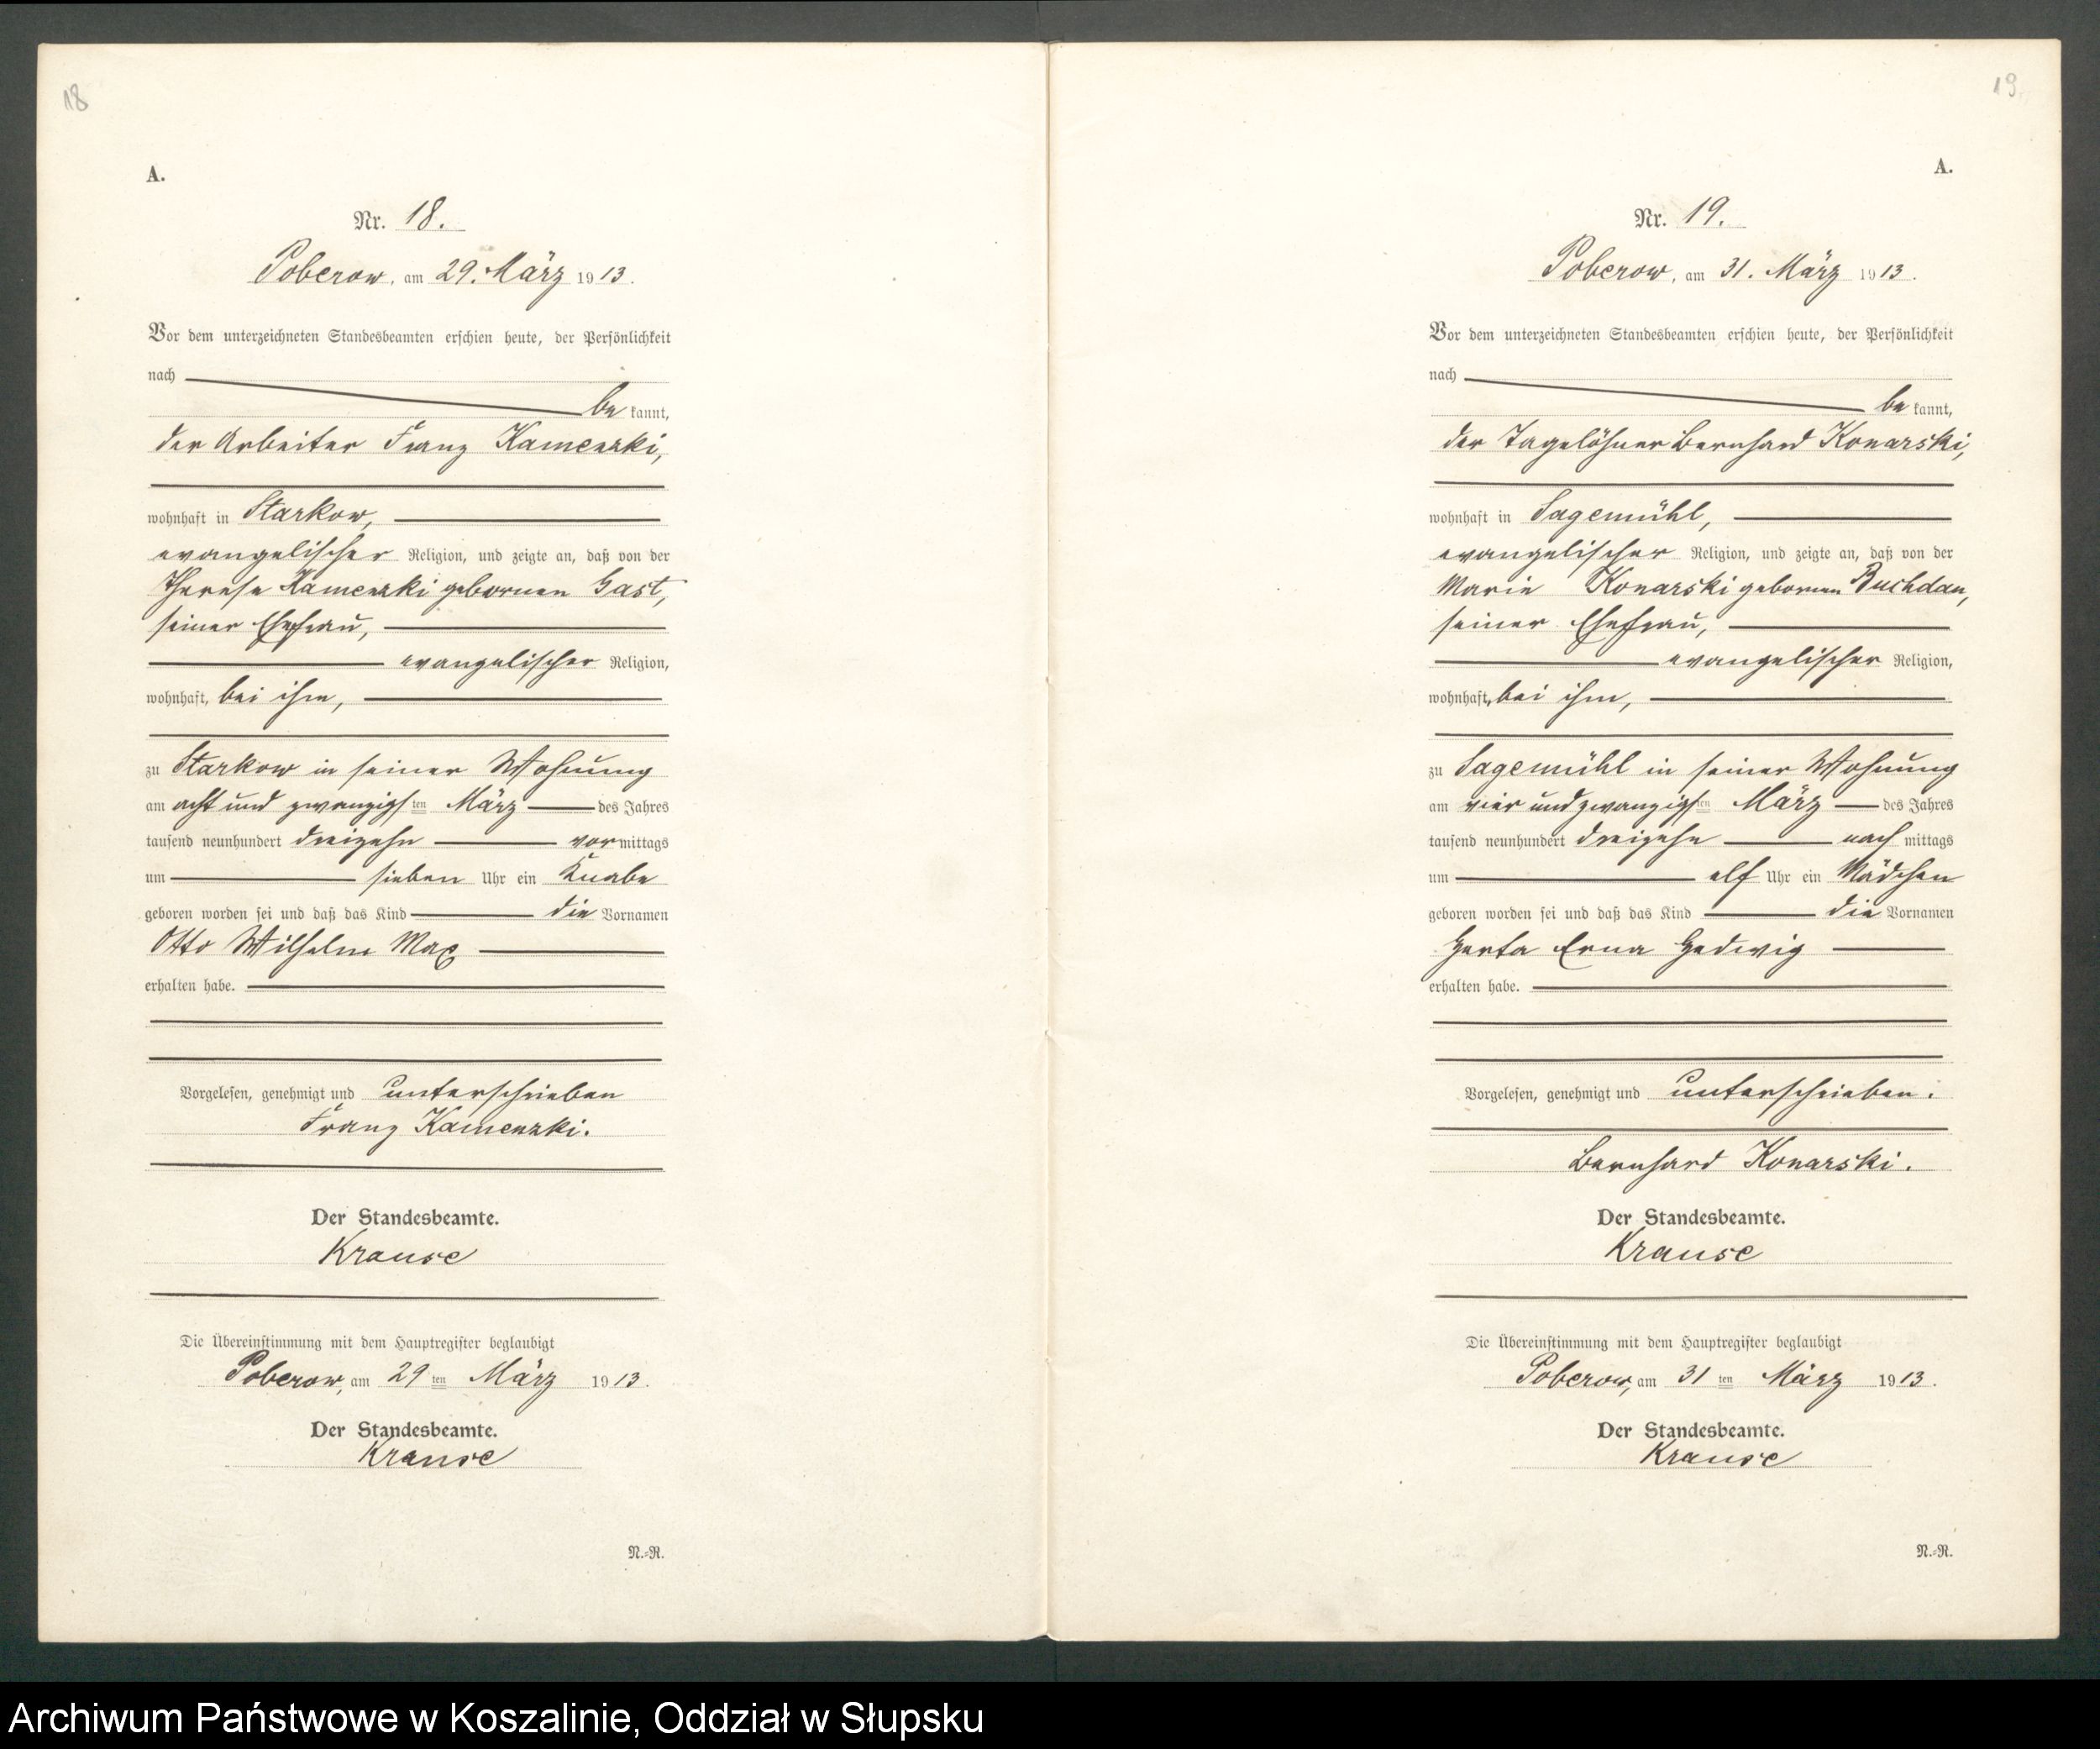 18
A.
Nr. 18.
Poberow, am 29. März 1913.
Vor dem unterzeichneten Standesbeamten erschien heute, der Persönlichkeit
nach
be kannt,
der Arbeiter Franz Kamenzki,
wohnhaft in Starkow,
evangelischer Religion, und zeigte an, daß von der
Therese Kamenzki gebornen Gast,
seiner Ehefrau,
evangelischer Religion,
wohnhaft, bei ihm,
zu Starkow in seiner Wohnung
am acht und zwanzigsten März des Jahres
tausend neunhundert dreizehn vormittags
um sieben Uhr ein Knabe
geboren worden sei und daß das Kind die Vornamen
Otto Wilhelm Max
erhalten habe.
Vorgelesen, genehmigt und unterschrieben
Franz Kamenzki.
Der Standesbeamte.
Krause
Die Übereinstimmung mit dem Hauptregister beglaubigt
Poberow, am 29 ten März 1913.
Der Standesbeamte.
Krause
N.=R.
19
A.
Nr. 19.
Poberow, am 31. März 1913.
Vor dem unterzeichneten Standesbeamten erschien heute, der Persönlichkeit
nach
be kannt,
der Tagelöhner Bernhard Konarski,
wohnhaft in Sagemühl,
evangelischer Religion, und zeigte an, daß von der
Marie Konarski gebornen Buchdau,
seiner Ehefrau,
evangelischer Religion,
wohnhaft, bei ihm,
zu Sagemühl in seiner Wohnung
am vier und zwanzigsten März des Jahres
tausend neunhundert dreizehn nach mittags
um elf Uhr ein Mädchen
geboren worden sei und daß das Kind die Vornamen
Herta Erna Hedwig
erhalten habe.
Vorgelesen, genehmigt und unterschrieben.
Bernhard Konarski.
Der Standesbeamte.
Krause
Die Übereinstimmung mit dem Hauptregister beglaubigt
Poberow, am 31 ten März 1913.
Der Standesbeamte.
Krause
N.=R.
Archiwum Państwowe w Koszalinie, Oddział w Słupsku